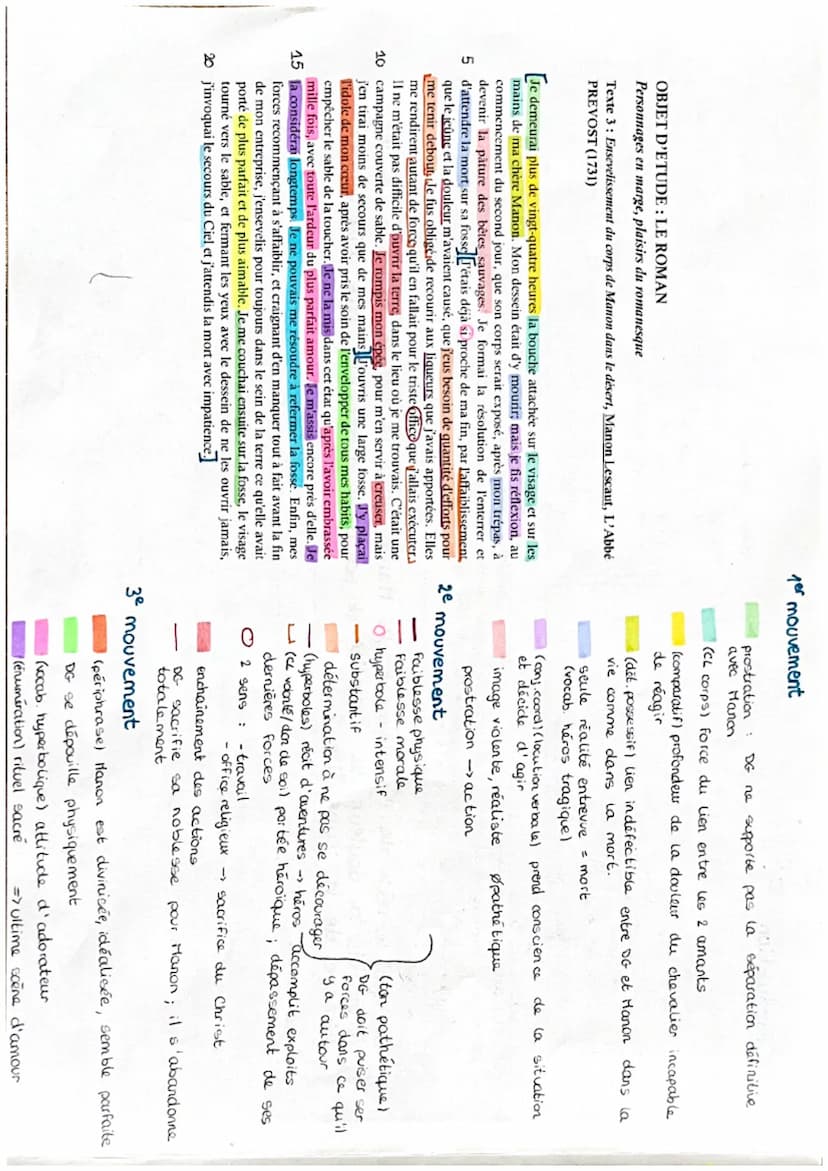 OBJET D'ETUDE : LE ROMAN
Personnages en marge, plaisirs du romanesque
Texte 3 : Ensevelissement du corps de Manon dans le désert, Manon Lescaut, L'Abbé
PREVOST (1731)
[Je demeurai plus de vingt-quatre heures la bouche attachée sur le visage et sur les
mains de ma chère Manon. Mon dessein était d'y mourir mais je fis réflexion, au
commencement du second jour, que son corps serait exposé, après mon trépas, à
devenir la pâture des bêtes sauvages. Je formai la résolution de l'enterrer et
5 d'attendre la mort sur sa fosse.][J'étais déjà si proche de ma fin, par l'affaiblissement
que le jeûne et la douleur m'avaient causé, que j'eus besoin de quantité d'efforts pour
me tenir debout. Je fus obligé de recourir aux liqueurs que j'avais apportées. Elles
me rendirent autant de force qu'il en fallait pour le triste office que j'allais exécuter.
Il ne m'était pas difficile d'ouvrir la terre, dans le lieu où je me trouvais. C'était une
10 campagne couverte de sable. Je rompis mon épée, pour m'en servir à creuser, mais
j'en tirai moins de secours que de mes mains.][J'ouvris une large fosse. J'y plaçai
l'idole de mon cœur, après avoir pris le soin de l'envelopper de tous mes habits, pour
empêcher le sable de la toucher. Je ne la mis dans cet état qu'après l'avoir embrassée
mille fois, avec toute l'ardeur du plus parfait amour. Je m'assis encore près d'elle. Je
15 la considérai longtemps. Je ne pouvais me résoudre à refermer la fosse. Enfin, mes
forces recommençant à s'affaiblir, et craignant d'en manquer tout à fait avant la fin
de mon entreprise, j'ensevelis pour toujours dans le sein de la terre ce qu'elle avait
porté de plus parfait et de plus aimable. Je me couchai ensuite sur la fosse, le visage
tourné vers le sable, et fermant les yeux avec le dessein de ne les ouvrir jamais,
20 j'invoquai le secours du Ciel et j'attendis la mort avec impatience.]
1er mouvement
prostration : DG ne supporte pas la séparation définitive
avec Manon
(CL corps) Force du lien entre les 2 amants
(comparatif) profondeur de la douleur du chevalier incapable
de réagir
(dét. possessif) lien indéfectible entre DG et Manon dans la
vie comme dans la mort.
seule réalité entrevue = mort
(vocab. héros tragique)
(conj. coord) (locution verbale) prend conscience de la situation
et décide d'agir
image violente, réaliste øpathétique
prostration → action
2e mouvement
Faiblesse physique
Faiblesse morale
hyperbole - intensif
substantif
(ton pathétique)
DG doit puiser ser
forces dans ce qu'il
y a autour
détermination à ne pas se décourager
(hyperboles) récit d'aventures → héros accomplit exploits
(CL volonté/don de soi) portée héroïque ; dépassement de ses
dernières forces
2 sens : - travail
- office religieux → sacrifice du Christ
enchaînement des actions
DG sacrifie sa noblesse pour Manon ; il s'abandonne
totalement
3e mouvement
(périphrase) Manon est divinisée, idéalisée, semble parfaite
DG se dépouille physiquement
(vocab. hyperbolique) attitude d'adorateur
(énumération) rituel sacré => ultime scène d'amour